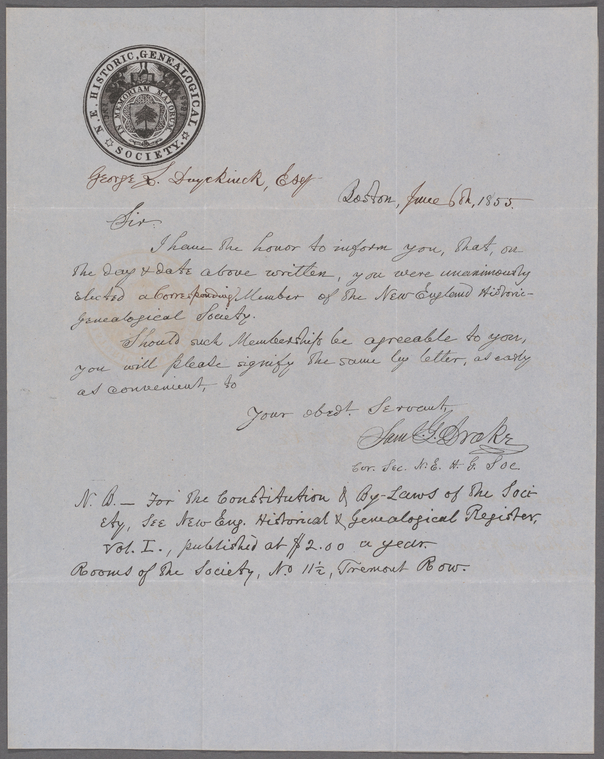 N. E. HISTORIC, GENEALOGICAL SOCIETY.
IN MEMORIAM MAJORUM
George L. Duyckinck, Esqr
Boston, June 6th, 1855.
Sir.
I have the honor to inform you, that, on
the day & date above written, you were unanimously
elected a Corresponding Member of the New England Historic-
Genealogical Society.
Should such Membership be agreeable to you,
you will please signify the same by letter, as early
as convenient, to
Your obedt. Servant,
Saml. G. Drake
Cor. Sec. N. E. H. G. Soc
N. B. — For the Constitution & By-Laws of the Soci-
ety, see New Eng. Historical & Genealogical Register,
Vol. I., published at $2.00 a year.
Rooms of the Society, No. 11½, Tremont Row.